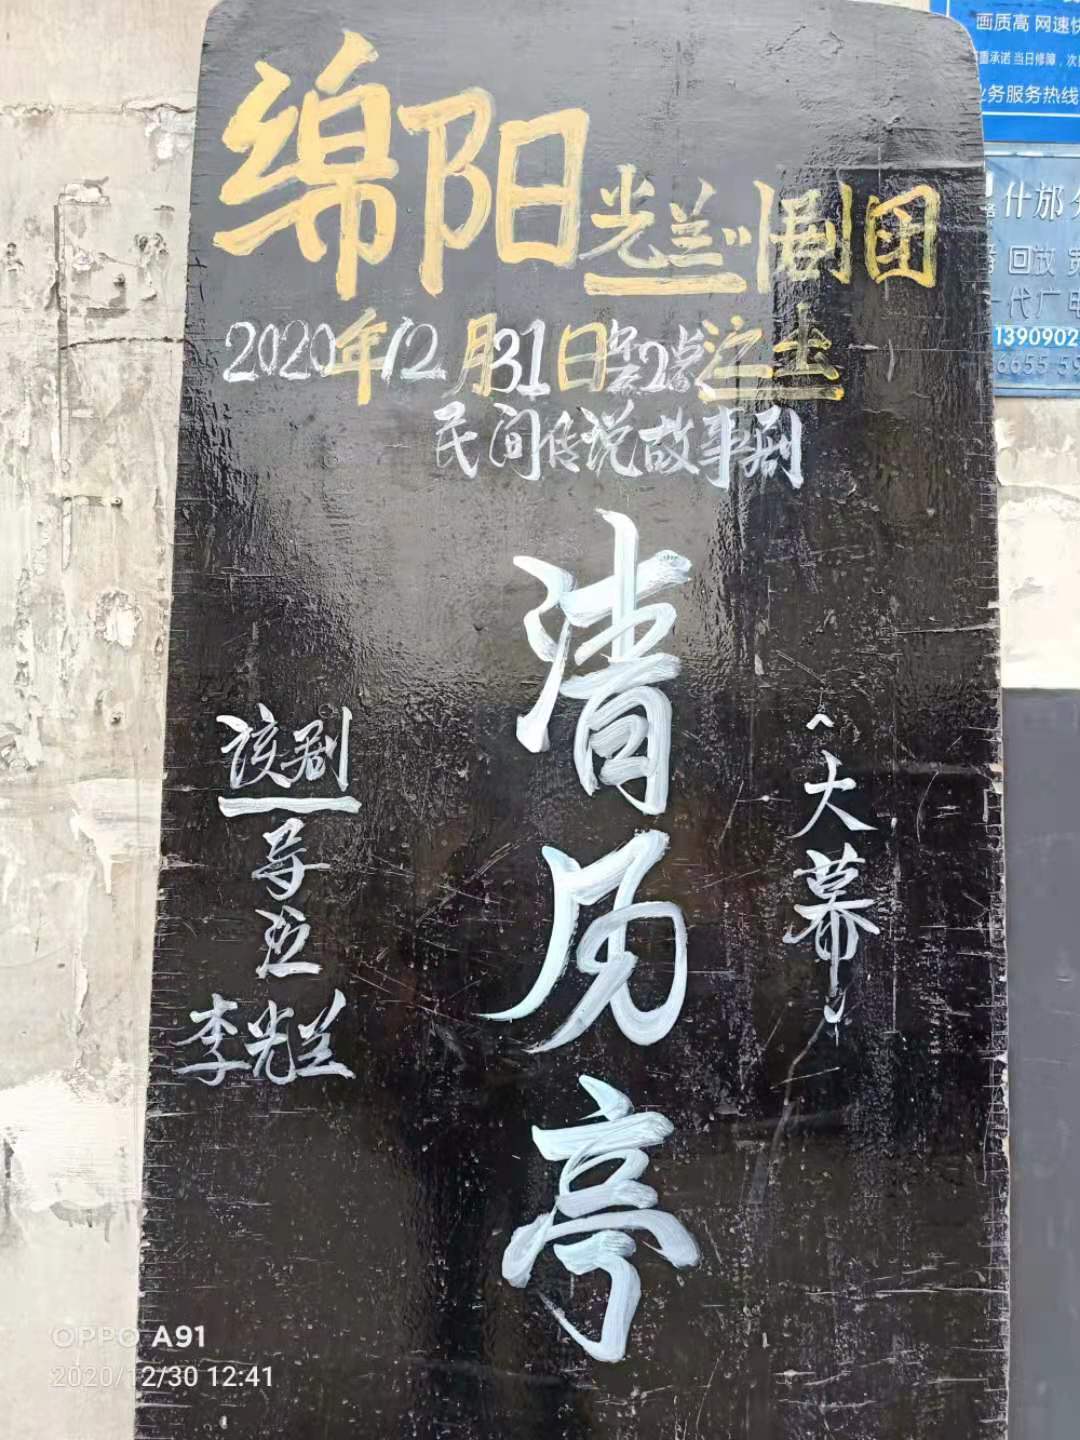 绵阳光兰川剧团
2020年12月31日 2点演出
民间传说故事剧
清风亭
(大幕)
该剧
导演
李光兰
画质高 网速快
承诺 当日修障,次
业务服务热线
什邡
回放
代广电
1390902
6655 59
OPPO A91
2020/12/30 12:41